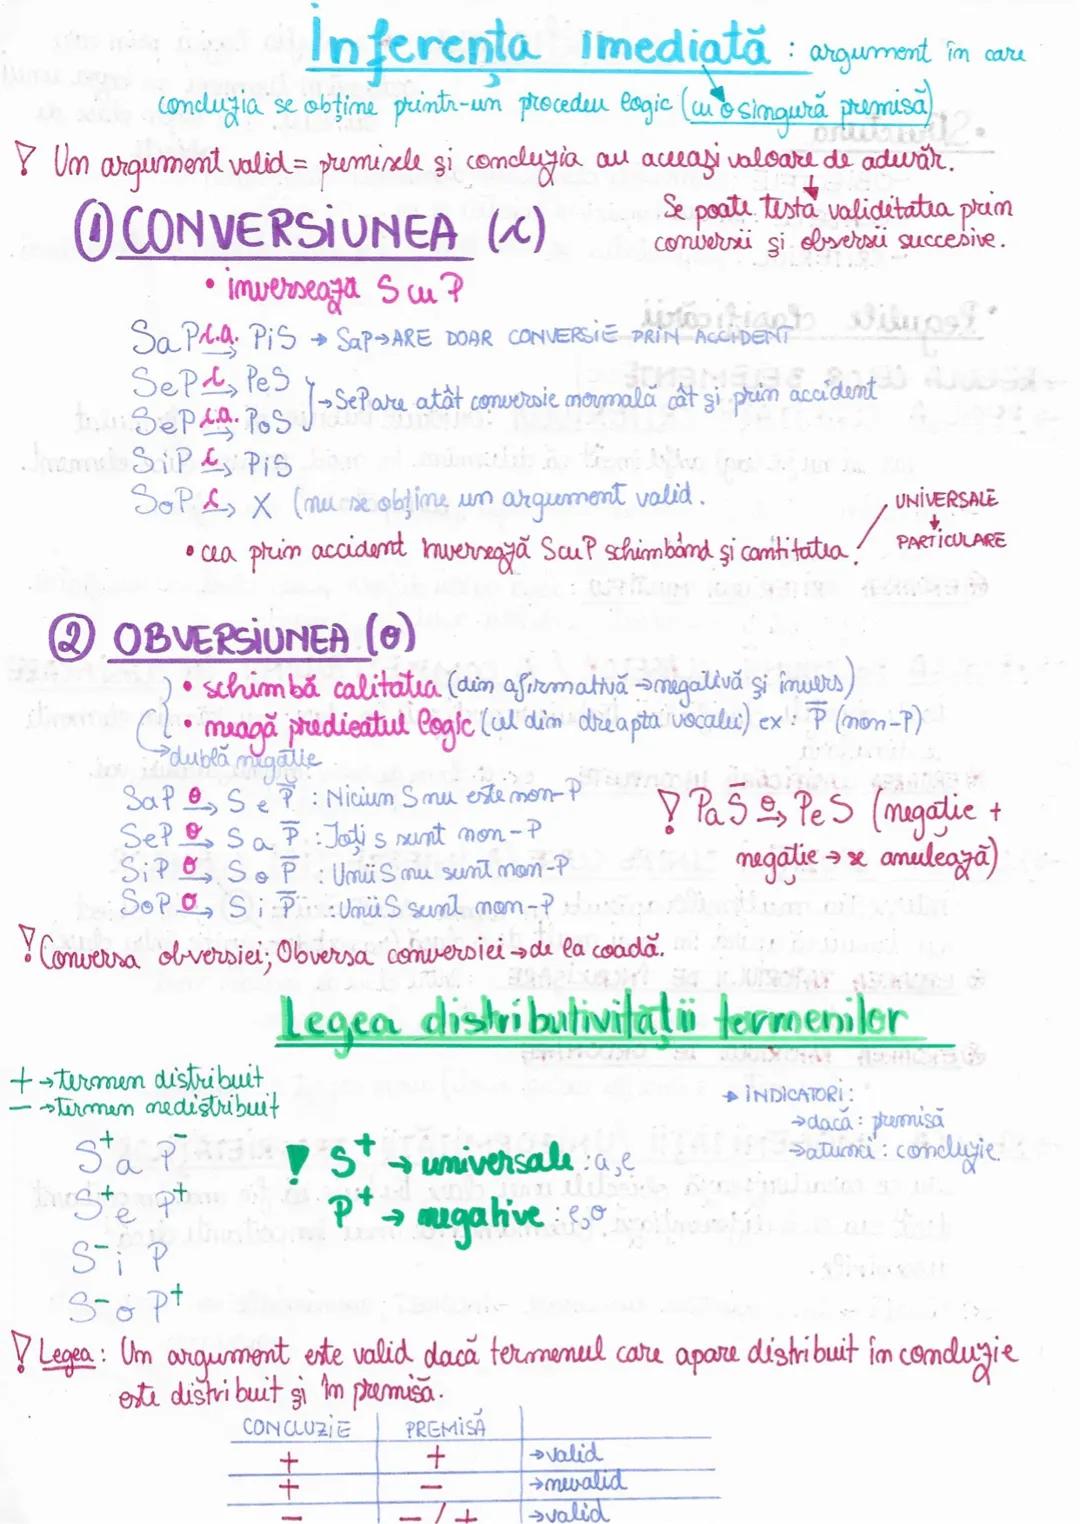 Inferența imediată : argument în care
concluzia se obține printr-un procedeu logic (cu o singură premisă)
! Un argument valid = premisele și concluzia au aceeași valoare de adevăr.
Se poate testa validitatea prin
conversii și obversii succesive.
① CONVERSIUNEA (c)
• inversează S cu P
SaP c.a.→ PiS → SaP→ARE DOAR CONVERSIE PRIN ACCIDENT
SeP c→ PeS
SeP c.a.→ PoS
→SeP are atât conversie normală cât și prin accident
SiP c→ PiS
SoP c→ X (nu se obține un argument valid.
• cea prin accident inversează S cu P schimbând și cantitatea!
UNIVERSALE
↓
PARTICULARE
② OBVERSIUNEA (o)
• schimbă calitatea (din afirmativă →negativă și invers)
• neagă predicatul logic (cel din dreapta vocalei) ex: P̅ (non-P)
→dublă negație
SaP o→ S e P̅ : Niciun S nu este non-P
SeP o→ S a P̅ : Toți s sunt non-P
SiP o→ S o P̅ : Unii S nu sunt non-P
SoP o→ S i P̅ : Unii S sunt non-P
! Pa S̅ o→ PeS (negație +
negație → se anulează)
! Conversa obversiei; Obversa conversiei →de la coadă.
Legea distributivității termenilor
+ →termen distribuit
− →termen nedistribuit
→ INDICATORI:
→dacă : premisă
→atunci : concluzie
S⁺ a P⁻
S⁺ e P⁺
S⁻ i P
S⁻ o P⁺
! S⁺ → universale : a,e
P⁺ → negative : e,o
! Legea : Un argument este valid dacă termenul care apare distribuit în concluzie
este distribuit și în premisă.
CONCLUZIE PREMISĂ
+ + →valid
+ − →nevalid
− −/+ →valid